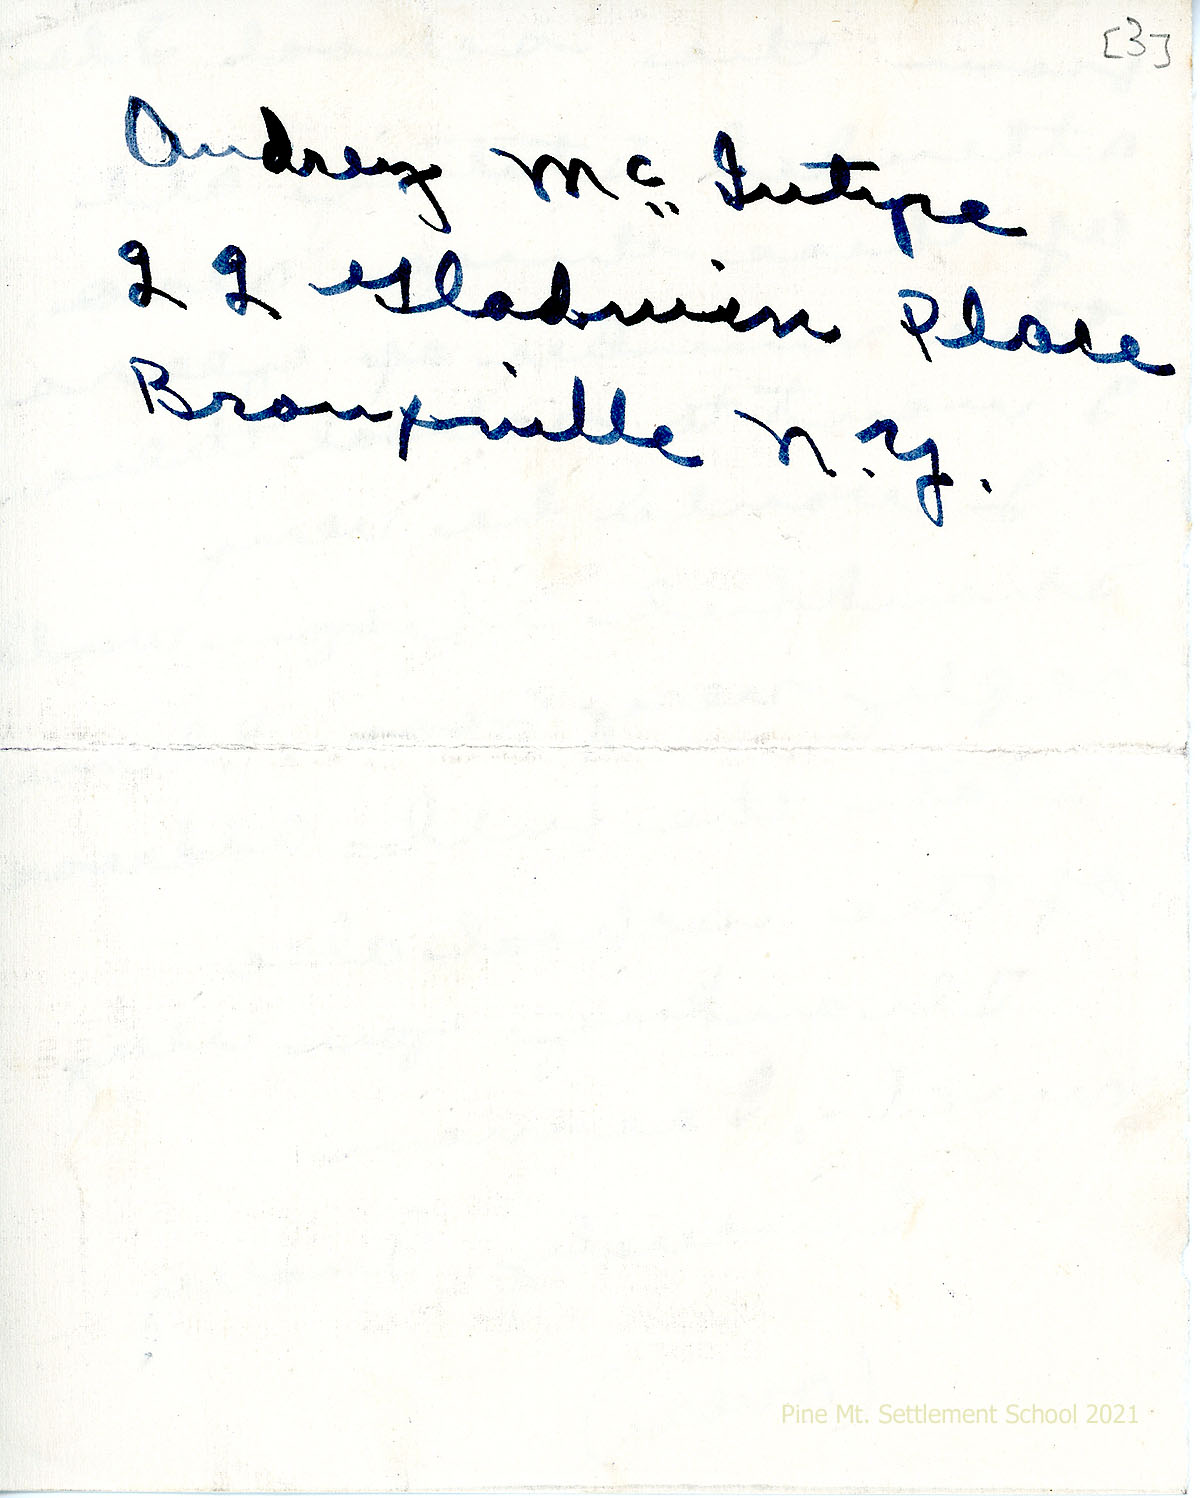 [3]
Audrey Mc Intyre
22 Gladwin Place
Bronxville N.Y.
Pine Mt. Settlement School 2021